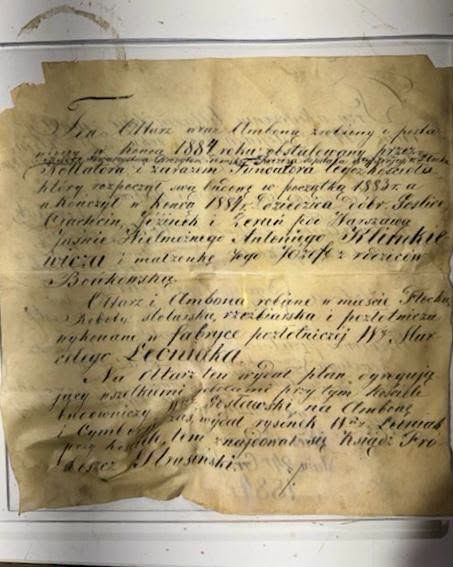 Ten Ołtarz wraz Amboną zrobiony i posta
wiony w końcu 1884 roku obstalowany przez
Kollatora i zarazem Fundatora tegoż kościoła
który rozpoczął swą budowę w początku 1883 r. a
ukończył w końcu 1884 r. Dziedzica Dóbr Goslic
i Zerań pod Warszawą
Jaśnie Wielmożnego Antoniego Klimkie
wicza i małżonkę Jego Józefę z rodziców
Bońkowską.
Ołtarz i Ambona robione w mieście Płocku
Roboty stolarska, rzeźbiarska i pozłotnicza
wykonane w fabryce pozłotniczej Wgo Mar
celego Leoniaka.
Na Ołtarz ten wydał plan
jący wszelkimi przy tym Kościele
budowniczy Wny Gosławski na Ambonę
i zaś wydał rysunek Wny Leoniak
przy kościele tem znajdował się Ksiądz Pro
boszcz Strusiński.